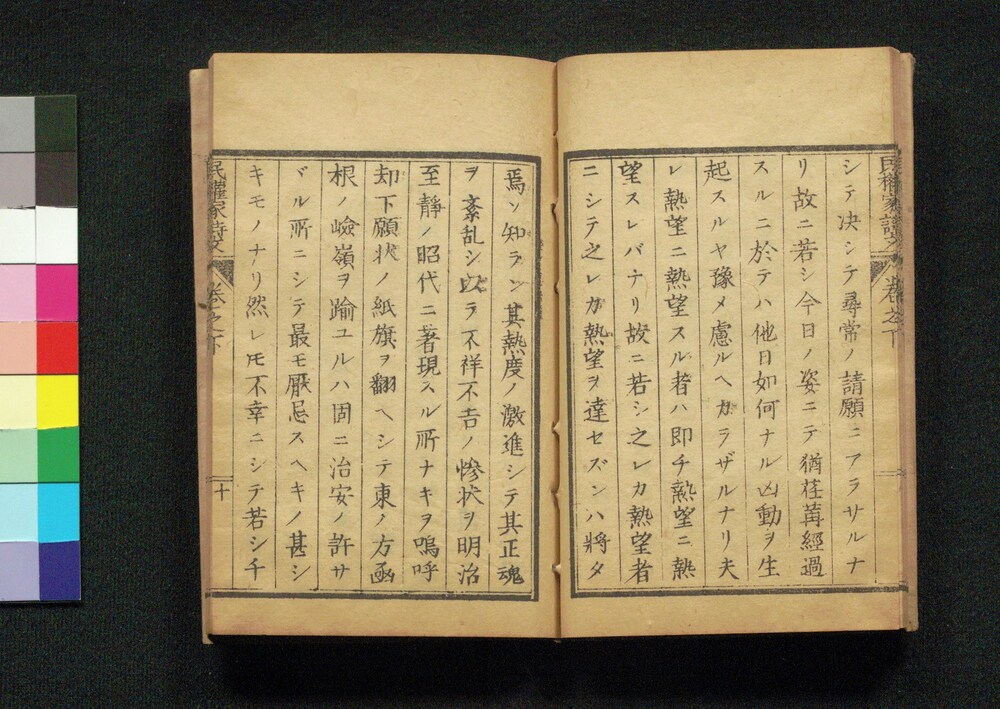 民權家詩文 卷之下
シテ決シテ尋常ノ請願ニアラサルナ
リ故ニ若シ今日ノ姿ニテ猶荏苒經過
スルニ於テハ他日如何ナル凶動ヲ生
起スルヤ豫メ慮ルヘカラザルナリ夫
レ熱望ニ熱望スル者ハ即チ熱望ニ熱
望スレバナリ故ニ若シ之レカ熱望者
ニシテ之レカ熱望ヲ達セズンハ將タ
焉ソ知ラン其熱度ノ激進シテ其正魂
ヲ紊乱シ以ラ不祥不吉ノ惨状ヲ明治
至靜ノ昭代ニ著現スル所ナキヲ嗚呼
却下願状ノ紙旗ヲ翻ヘシテ東ノ方函
根ノ嶮嶺ヲ踰ユルハ固ニ治安ノ許サ
ヾル所ニシテ最モ厭忌スヘキノ甚シ
キモノナリ然レ𪜈不幸ニシテ若シ千
民權家詩文 卷之下 十